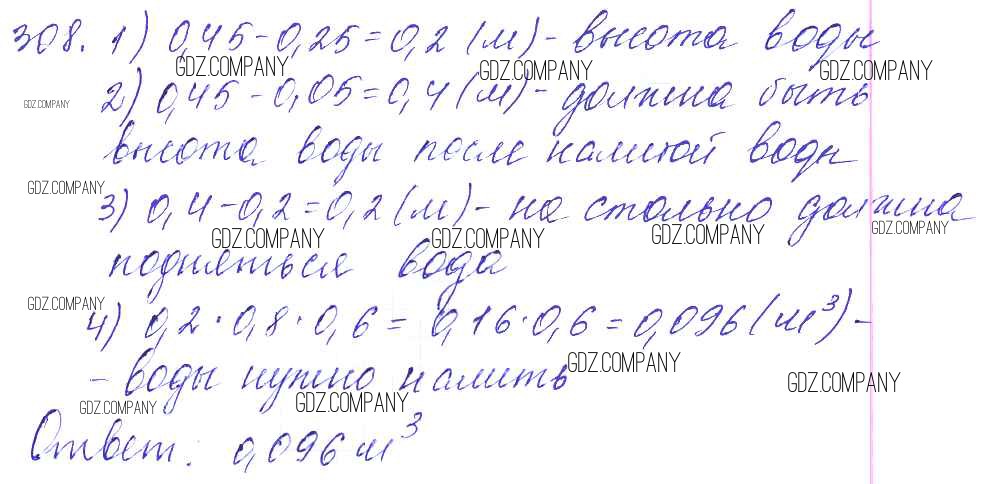 308. 1) 0,45-0,25=0,2 (м) - высота воды
GDZ.COMPANY GDZ.COMPANY GDZ.COMPANY
GDZ.COMPANY 2) 0,45-0,05=0,4 (м) - должна быть
высота воды после налитой воды
GDZ.COMPANY
3) 0,4-0,2=0,2 (м) - на столько должна
GDZ.COMPANY GDZ.COMPANY GDZ.COMPANY GDZ.COMPANY
подняться вода
GDZ.COMPANY
4) 0,2·0,8·0,6= 0,16·0,6=0,096 (м³) -
GDZ.COMPANY
- воды нужно налить
GDZ.COMPANY
GDZ.COMPANY GDZ.COMPANY
Ответ: 0,096 м³